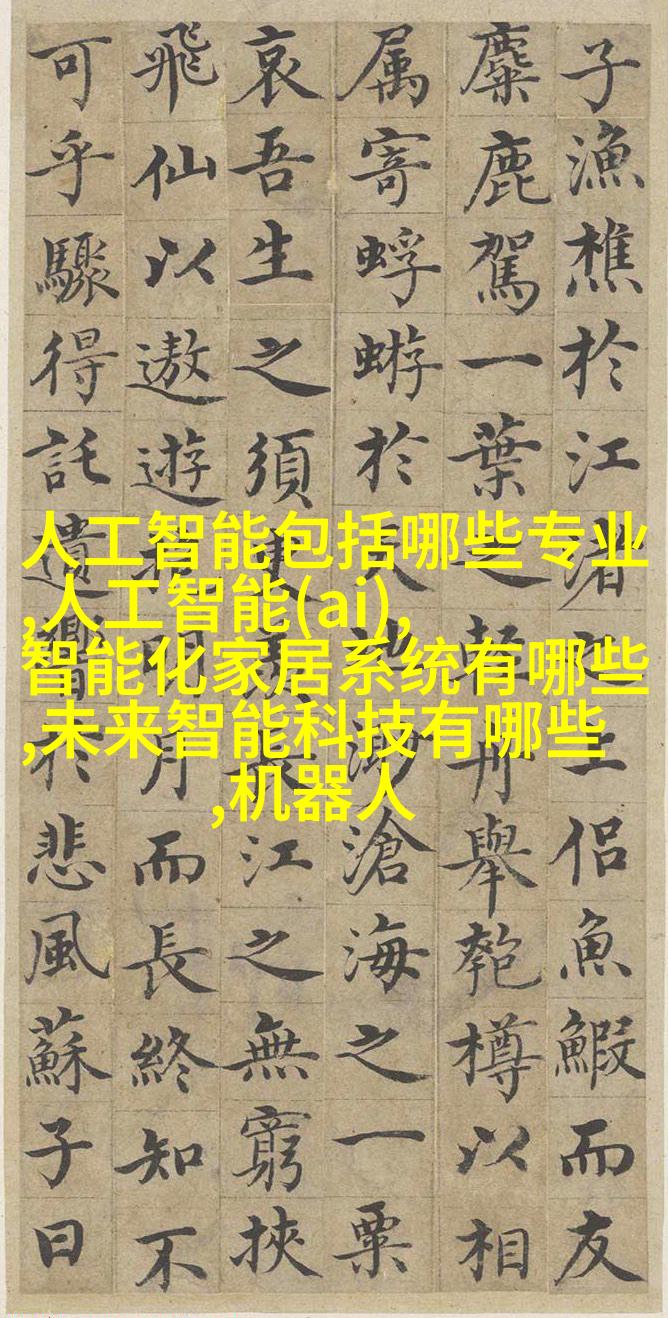 子漁樵於江渚之上侣魚鰕而友
麋鹿駕一葉之輕舟舉匏樽以相
属寄蜉蝣於天地渺滄海之一粟
哀吾生之須臾羨長江之無窮挾
飛仙以遨遊抱明月而長終知不
可乎驟得託遺響於悲風蘇子曰
人工智能包括哪些专业
,人工智能(ai),
智能化家居系统有哪些
,未来智能科技有哪些
,机器人